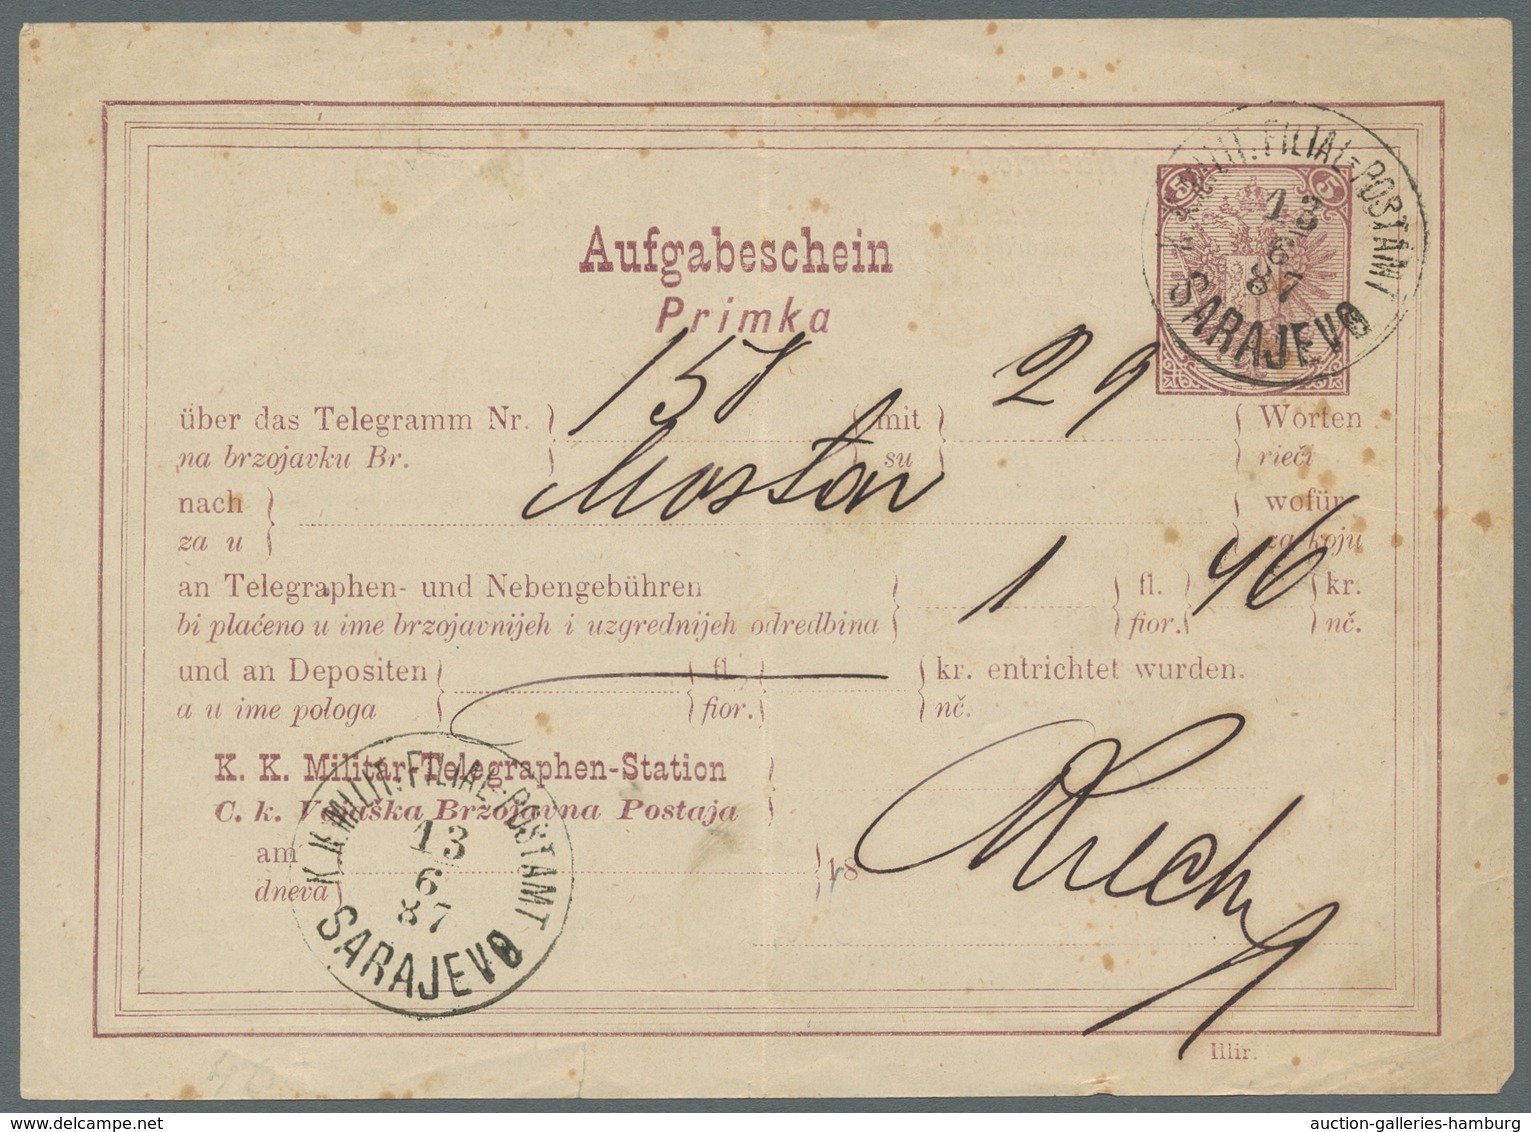 5 5
K.K. MILIT. FILIAL-POSTAMT
13
6
87
SARAJEVO
5
Aufgabeschein
Primka
über das Telegramm Nr. mit 29 Worten
na brzojavku Br. su rieči
nach Mostar wofür
za u za koju
an Telegraphen- und Nebengebühren 1 fl. 46 kr.
bi plaćeno u ime brzojavnijeh i uzgrednijeh odredbina fior. nč.
und an Depositen fl. kr. entrichtet wurden.
a u ime pologa fior. nč.
K. K. Militär-Telegraphen-Station
C. k. Vojaška Brzojavna Postaja
am 18
dneva
K.K. MILIT. FILIAL-POSTAMT
13
6
87
SARAJEVO
Illir.
auction-galleries-hamburg